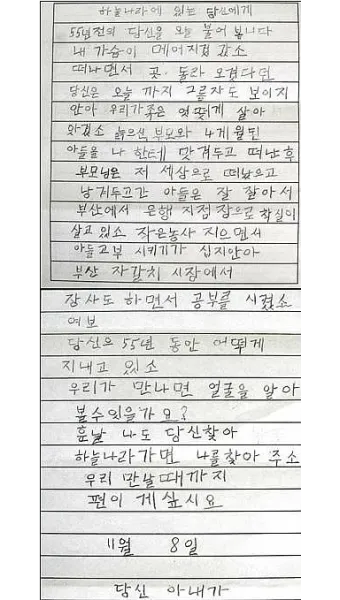 하늘나라에 있는 당신에게
55년전의 당신을 오늘 불어 봅니다
내 가슴이 메어지겄 갔소
떠나면서 곳 돌라 오겠다던
당신은 오늘 까지 그름자도 보이지
안아 우리가족은 엇떻게 살아
와겠소 늙으신 부모와 4개월된
아들을 나 한테 맛겨두고 떠난후
부모님은 저 세상으로 떠났으고
남겨두고간 아들은 잘 잘아서
부산에서 은행 지점 잠으로 착실이
살고 있소 작은농사 지으면서
아들고부 시키기가 십지안아
부산 자갈치 시장에서
잠사도 하면서 공부를 시켰소
여보
당신으 55년 동안 어떻게
지내고 있소
우리가 만나면 얼굴을 알아
볼수잇을가요?
훈날 나도 당신찾아
하늘나라가면 나를찾아 주소
우리 만날때까지
편이 게싶시요
11월 8일
당신 아내가